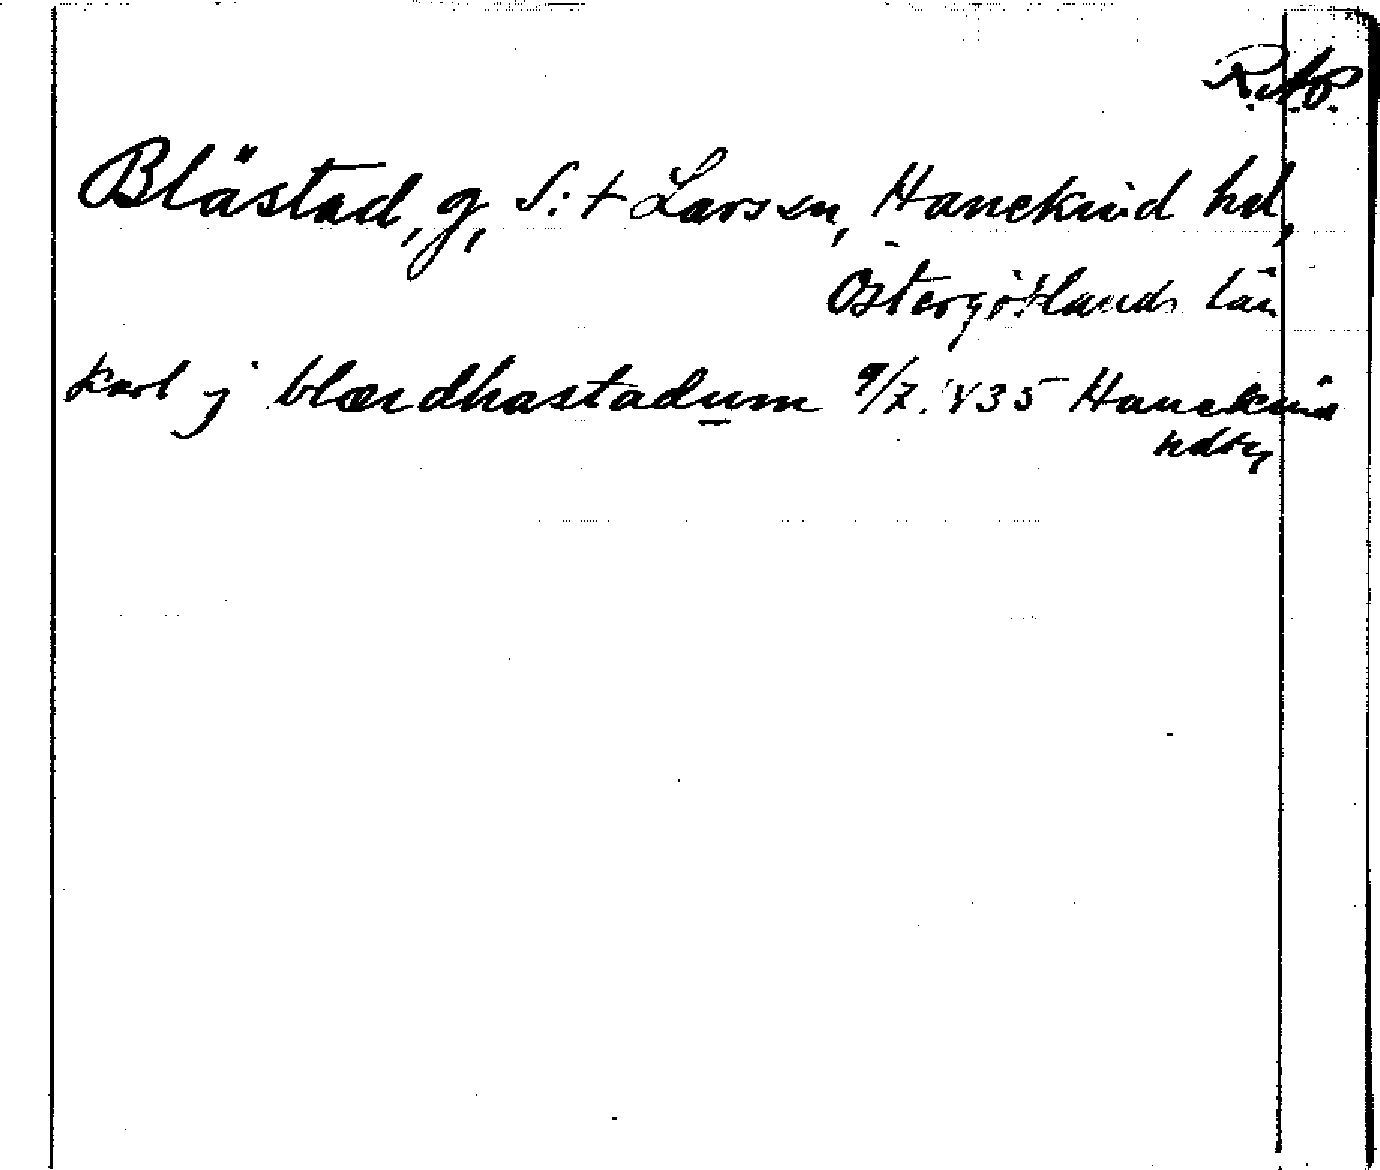 R.A.P.
Blästad, g, S:t Larsen, Hanekind hd,
Östergötlands län
karl j blærdhastadum 9/7. 1435 Hanekind
hdbr,